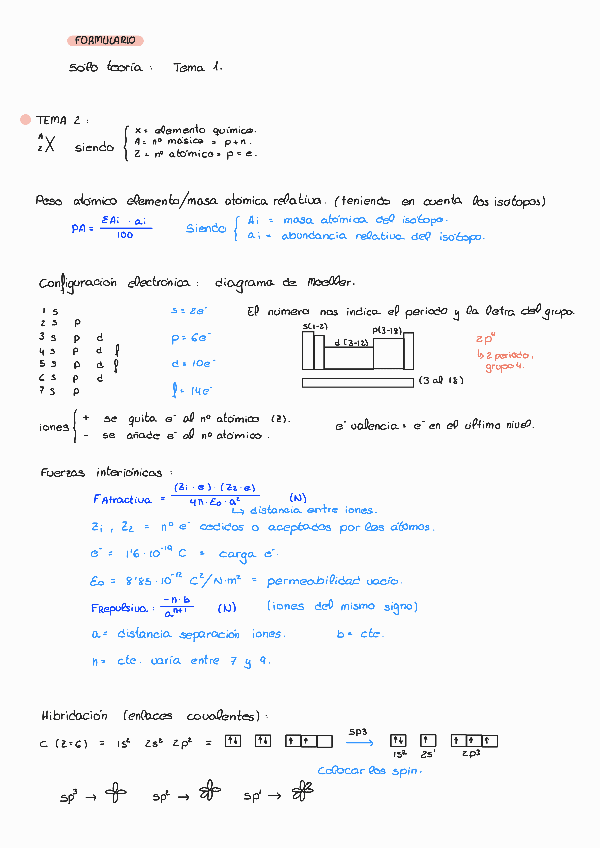 FORMULARIO
Solo teoría: Tema 1.
TEMA 2:
A
Z X siendo { x = elemento químico.
A = nº másico = p+n.
Z = nº atómico = p = e.
Peso atómico elemento/masa atómica relativa. (teniendo en cuenta los isótopos)
PA = ΣAi · ai / 100 Siendo { Ai = masa atómica del isótopo.
ai = abundancia relativa del isótopo.
Configuración electrónica: diagrama de Moeller.
1 s s = 2e⁻ El número nos indica el periodo y la letra del grupo.
2 s p
3 s p d p = 6e⁻
4 s p d f
5 s p d f d = 10e⁻
6 s p d
7 s p f = 14e⁻
s(1-2) p(3-18)
d (3-12)
(3 al 18)
2p⁴
↳ 2 periodo,
grupo 4.
iones { + se quita e⁻ al nº atómico (Z).
- se añade e⁻ al nº atómico.
e⁻ valencia = e⁻ en el último nivel.
Fuerzas interiónicas:
FAtractiva = (Z1 · e) · (Z2 · e) / 4π · Eo · a² (N)
↳ distancia entre iones.
Z1, Z2 = nº e⁻ cedidos o aceptados por los átomos.
e⁻ = 1'6 · 10⁻¹⁹ C = carga e⁻.
Eo = 8'85 · 10⁻¹² C²/N·m² = permeabilidad vacío.
FRepulsiva: -n·b / aⁿ⁺¹ (N) (iones del mismo signo)
a = distancia separación iones. b = cte.
n = cte. varía entre 7 y 9.
Hibridación (enlaces covalentes):
C (Z=6) = 1s² 2s² 2p² = ↑↓ ↑↓ ↑ ↑ sp3 → ↑↓ ↑ ↑ ↑ ↑
1s² 2s¹ 2p3
Colocar los spin.
sp³ → sp² → sp¹ →